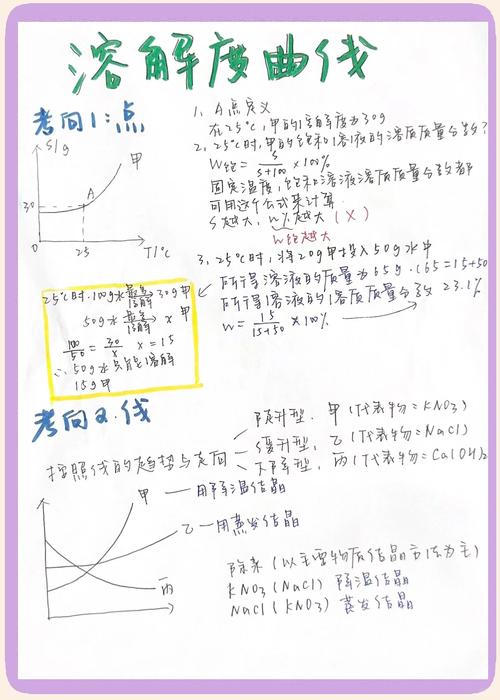 溶解度曲线
考向1:点
S/g
甲
A
30
0
25
T/℃
1. A点定义
在25℃,甲的溶解度为30g
2. 25℃时,甲的饱和溶液的溶质质量分数?
W饱= S/S+100 ×100%
固定温度,饱和溶液溶质质量分数都
可用这个公式来计算
S越大,W%越大 (X)
W饱越大
3. 25℃时,将20g甲投入50g水中
所得溶液的质量为65g.(65=15+50
所得溶液的溶质质量分数 23.1%
W= 15/15+50 ×100%
25℃时.100g水 最多溶解→ 30g甲
50g水 最多溶解→ x 甲
100/50 = 30/x x=15
∴ 50g水只能溶解
15g甲
考向2.线
按照线的趋势与走向
陡升型. 甲(代表物:KNO3)
缓升型, 乙(代表物:NaCl)
下降型, 丙(代表物:Ca(OH)2
甲—用降温结晶
乙—用蒸发结晶
丙
除杂(以主要物质结晶方法为主)
KNO3(NaCl) 降温结晶
NaCl(KNO3) 蒸发结晶